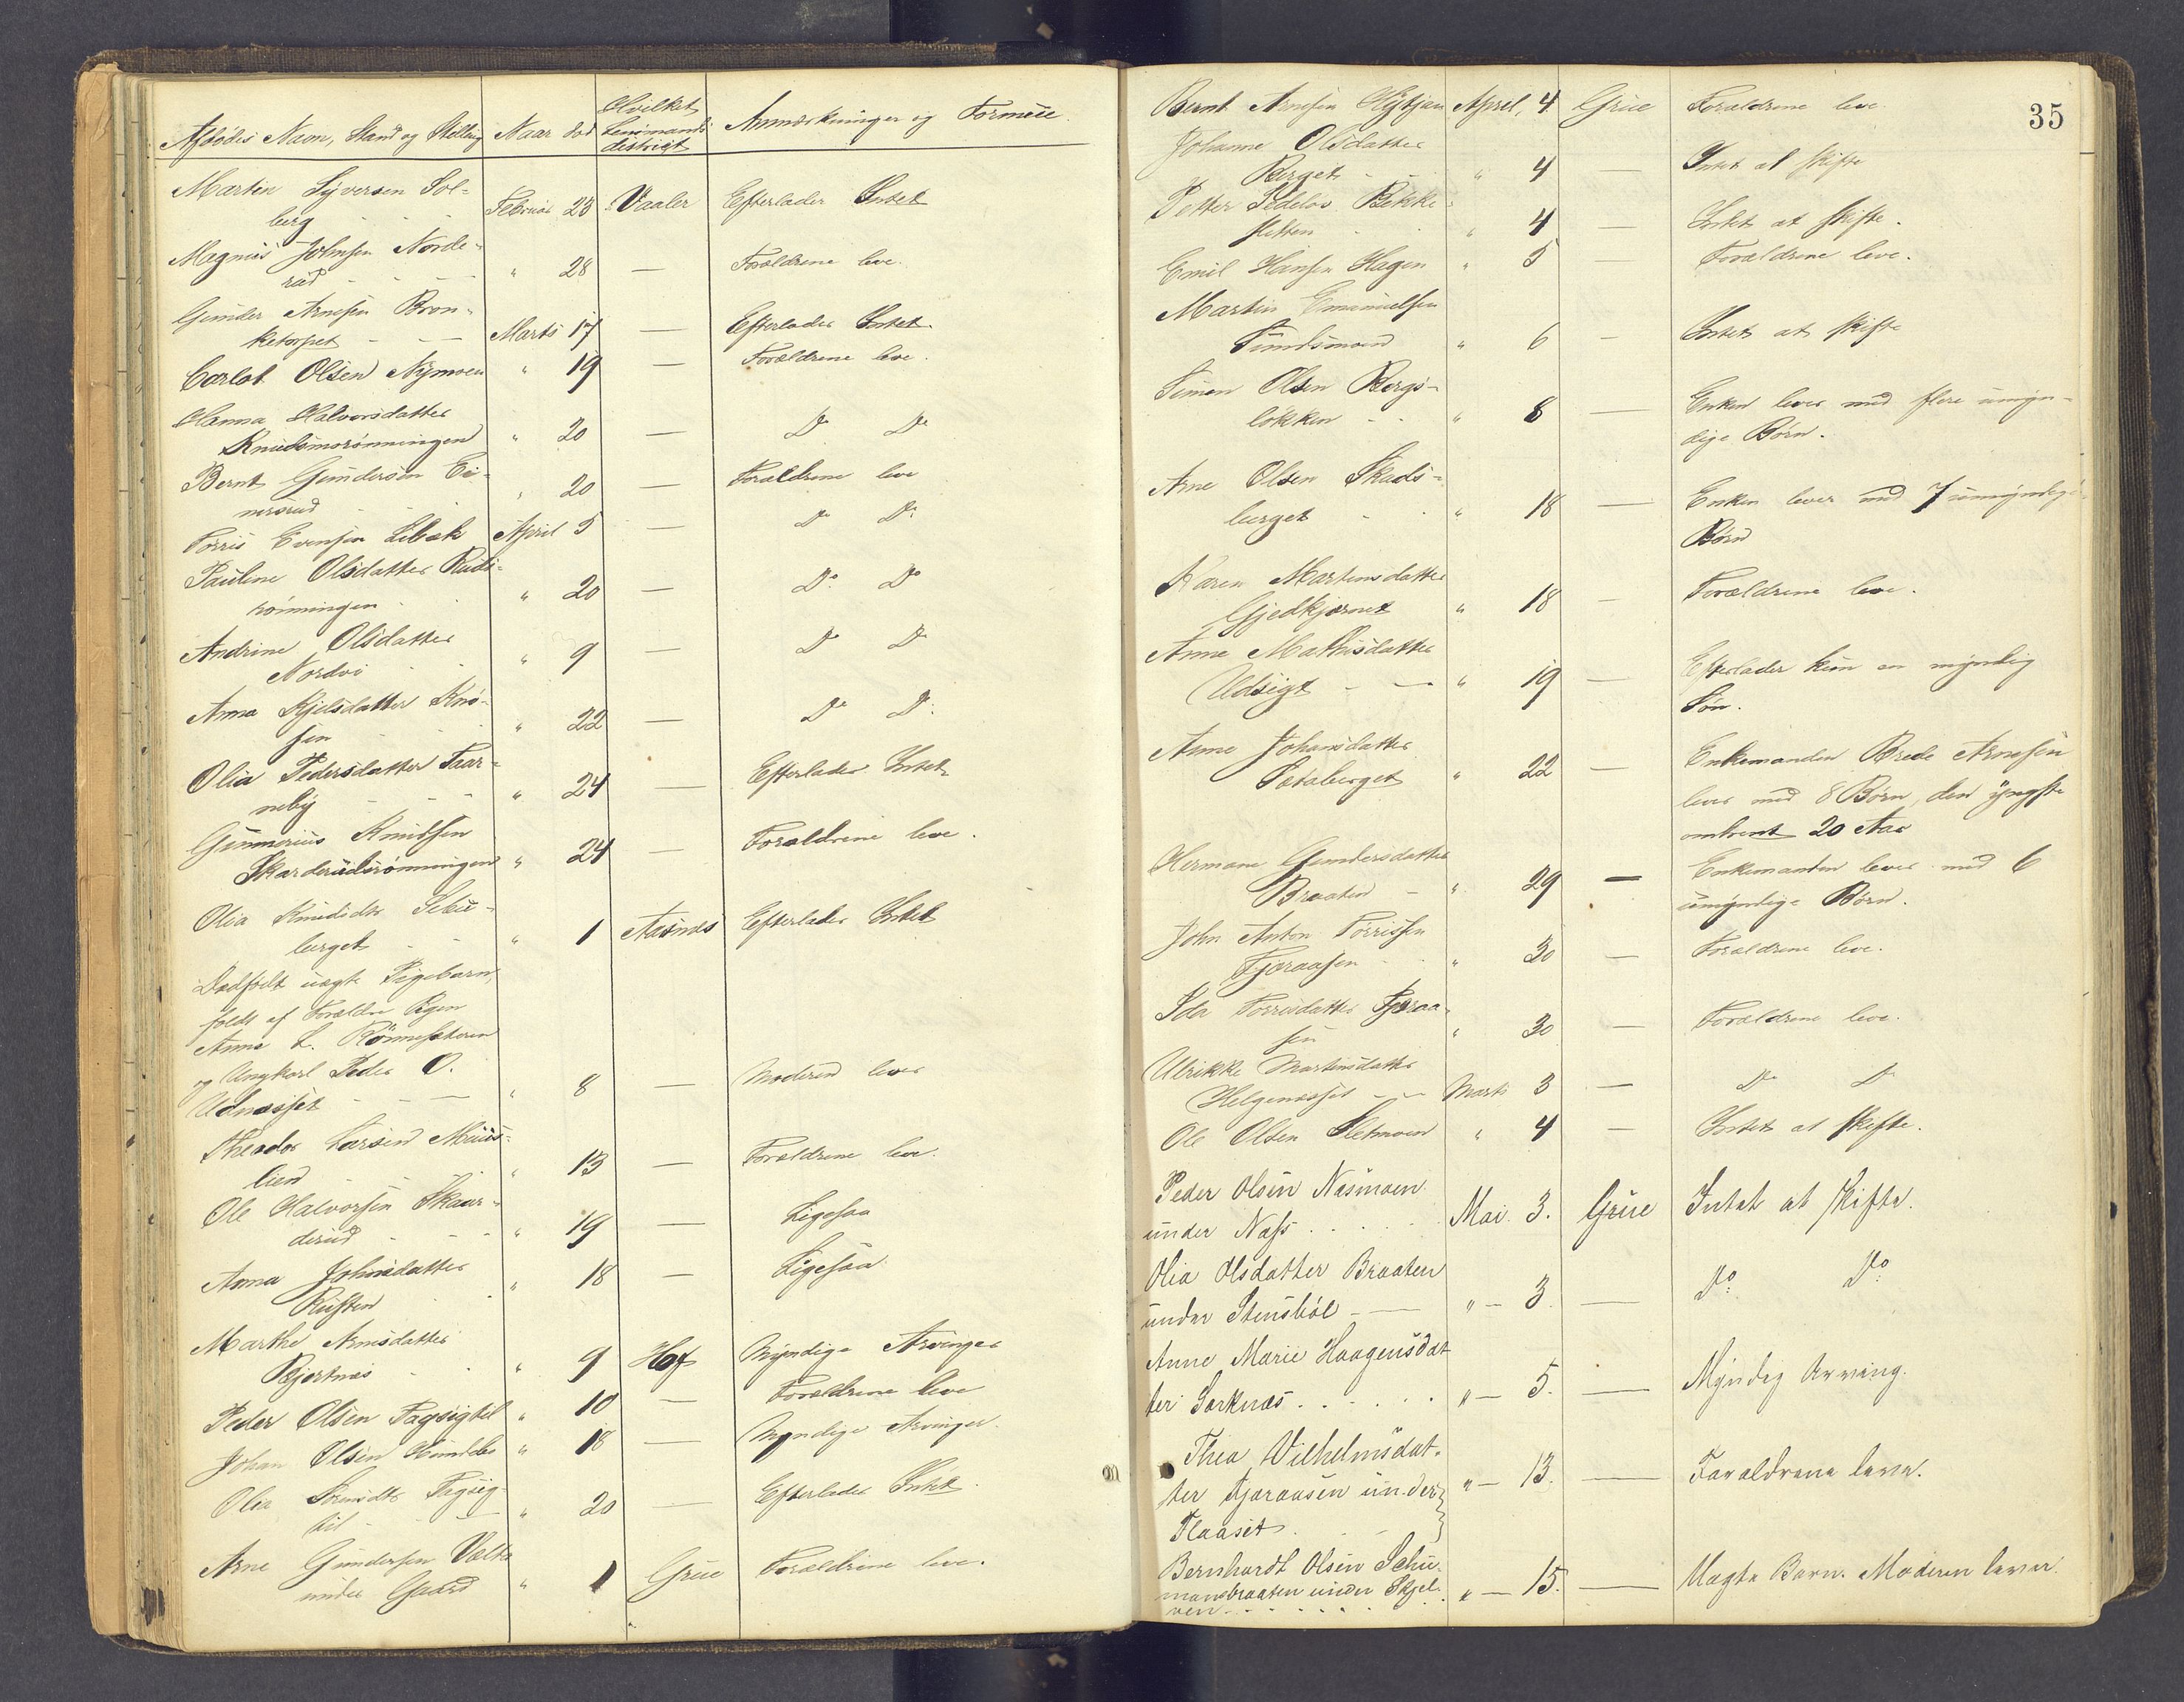 Afdødes Navn, Stand og Stilling Naar død Hvilket Lensmandsdistrigt Anmærkninger og Formue
Martin Syversen Sol-
berg Februar 23 Vaaler Efterlader Intet
Magnus Johnsen Norde-
rud " 28 — Forældrene leve.
Gunder Arnesen Bron-
ketorpet Marts 17 — Efterlader Intet.
Carlot Olsen Nymoen " 19 — Forældrene leve.
Hanna Halvorsdatter
Knudsmorønningen " 20 — Do Do
Bernt Gundersen Ei-
nersrud " 20 — Forældrene leve
Torris Evensen Libæk April 5 — Do Do
Pauline Olsdatter Ruds-
rønningen " 20 — Do Do
Andrine Olsdatter
Nordvi " 9 — Do Do
Anna Kjelsdatter Knø-
sen " 22 — Do Do
Olia Pedersdatter Taar-
neby " 24 — Efterlader Intet
Gunnerius Knudsen
Skarderudsrønningen " 24 — Forældrene leve.
Olia Knudsdtr
berget " 1 Aasnæs Efterlader Intet
Dødfødt uægte Pigebarn,
født af Forældre Pigen
Anna L. Rønnesæteren
og Ungkarl Peder O.
Udnæsset " 8 — Moderen lever
Theodor Larsen Muus-
lien " 13 — Forældrene leve.
Ole Halvorsen Skaar-
derud " 19 — Ligesaa
Anna Johnsdatter
Rusten " 18 — Ligesaa
Marthe Arnesdatter
Bjertnæs " 9 Hof Myndige Arvinger
Peder Olsen Fagsigtel " 10 — Forældrene leve
Johan Olsen " 18 — Myndige Arvinger.
Olia Fagsig-
til " 20 — Efterlader Intet.
Arne Gundersen
under Gaard " 1 Grue Forældrene leve.
35
Bernt Arnesen April, 4 Grue Forældrene leve
Johanne Olsdatter
Berget " 4 — Intet at skifte
Petter Pedelov Bekke-
sletten " 4 — Intet at skifte.
Emil Hansen Hagen " 5 — Forældrene leve.
Martin Emanuelsen
Tundsmoen " 6 — Intet at skifte
Simen Olsen Bergs-
løkken " 8 — Enken lever med flere umyn-
dige Børn.
Arne Olsen Skads-
berget " 18 — Enken lever med 7 umyndige
Børn
Karen Martinsdatter
Gjedkjernet " 18 — Forældrene leve.
Anne Mathisdatter
Udsigt " 19 — Efterlader kun en myndig
Søn.
Anne Johansdatter
" 22 — Enkemanden Brede Arnesen
lever med 8 Børn, den yngste
omtrent 20 Aar
Hermane Gundersdatter
Braaten " 29 — Enkemanden lever med 6
umyndige Børn.
John Anton Torrissen
Fjæraasen " 30 — Forældrene leve.
Ida Torrisdatter Fjæraa-
sen " 30 — Forældrene leve.
Ulrikke Martinsdatter
Helgenæsset Marts 3 — Do Do
Ole Olsen Sletmoen " 4 — Intet at skifte.
Peder Olsen Næsmoen
under Næss Mai 3. Grue Intet at skifte.
Olia Olsdatter Braaten
under Stensbøl " — 3. — Do. Do.
Anne Marie Haagensdat
ter Sørknæs " — 5. — Myndig Arving.
Thea Vilhelmsdat-
ter Fjæraasen under " — 13. — Forældrene lever.
Flaaset
Bernhardt Olsen Schu-
manbraaten under Skjel- " — 15. — Uægte Barn. Moderen lever.
ven